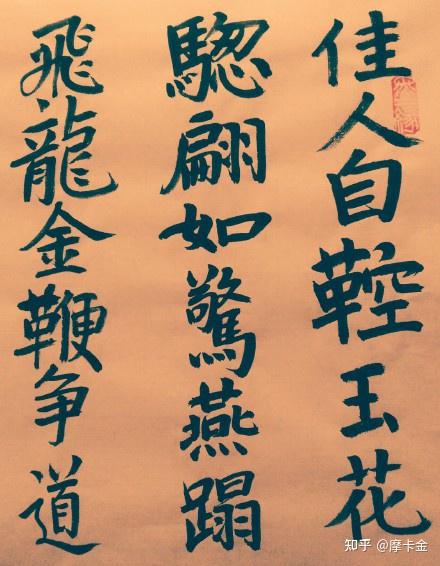 佳人自鞚玉花
騘翩如驚燕蹋
飛龍金鞭争道
知乎 @摩卡金